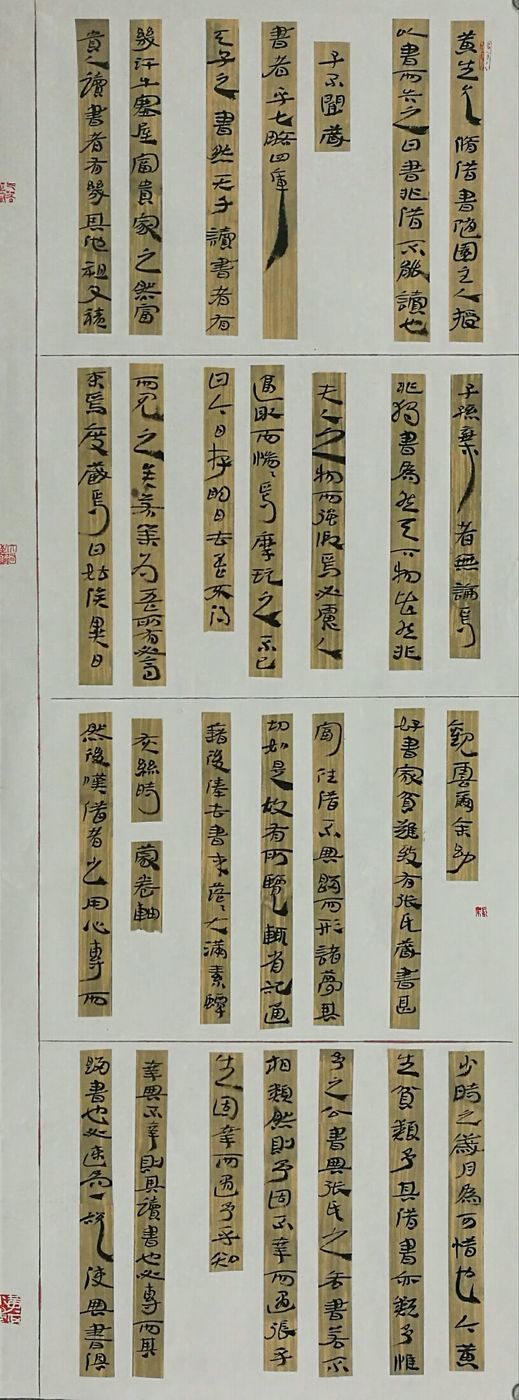 黃生允脩借書隨園主人授
以書而告之曰書非借不能讀也
子不聞藏
書者乎七略四庫
天子之書然天子讀書者有
幾汗牛塞屋富貴家之然富
貴人讀書者有幾其他祖父積
子孫棄者無論焉
非獨書為然天下物皆然非
夫人之物而強假焉必慮人
逼取而惴〻焉摩玩之不已
曰今日存明日去吾不得
而見之矣若業為吾所有必高
束焉庋藏焉曰姑俟異日
觀雲爾余幼
好書家貧難致有張氏藏書甚
富往借不與歸而形諸夢其
切如是故有所覽輒省記通
籍後俸去書來落〻大滿素蟫
灰絲時蒙卷軸
然後嘆借者之用心專而
少時之歲月為可惜也今黃
生貧類予其借書亦類予惟
予之公書與張氏之吝書若不
相類然則予固不幸而遇張乎
生固幸而遇予乎知
幸與不幸則其讀書也必專而其
歸書也必速為一說使與書俱